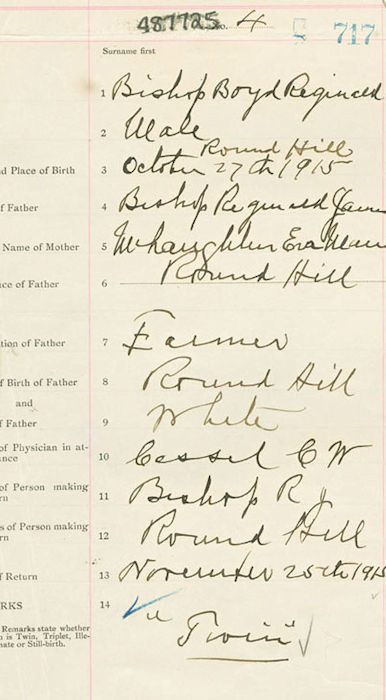 487725 No. 4 717
Surname first
1 Bishop Boyd Reginald
2 Male
Round Hill
d Place of Birth 3 October 27th 1915
f Father 4 Bishop Reginald James
Name of Mother 5 McLaughlin Eva
ce of Father 6 Round Hill
tion of Father 7 Farmer
f Birth of Father 8 Round Hill
and
f Father 9 White
of Physician in at-
nce 10 Cassel C W
of Person making
rn 11 Bishop R J
s of Person making
rn 12 Round Hill
f Return 13 November 25th 1915
RKS 14
Remarks state whether
n is Twin, Triplet, Ille-
mate or Still-birth.
"Twin"